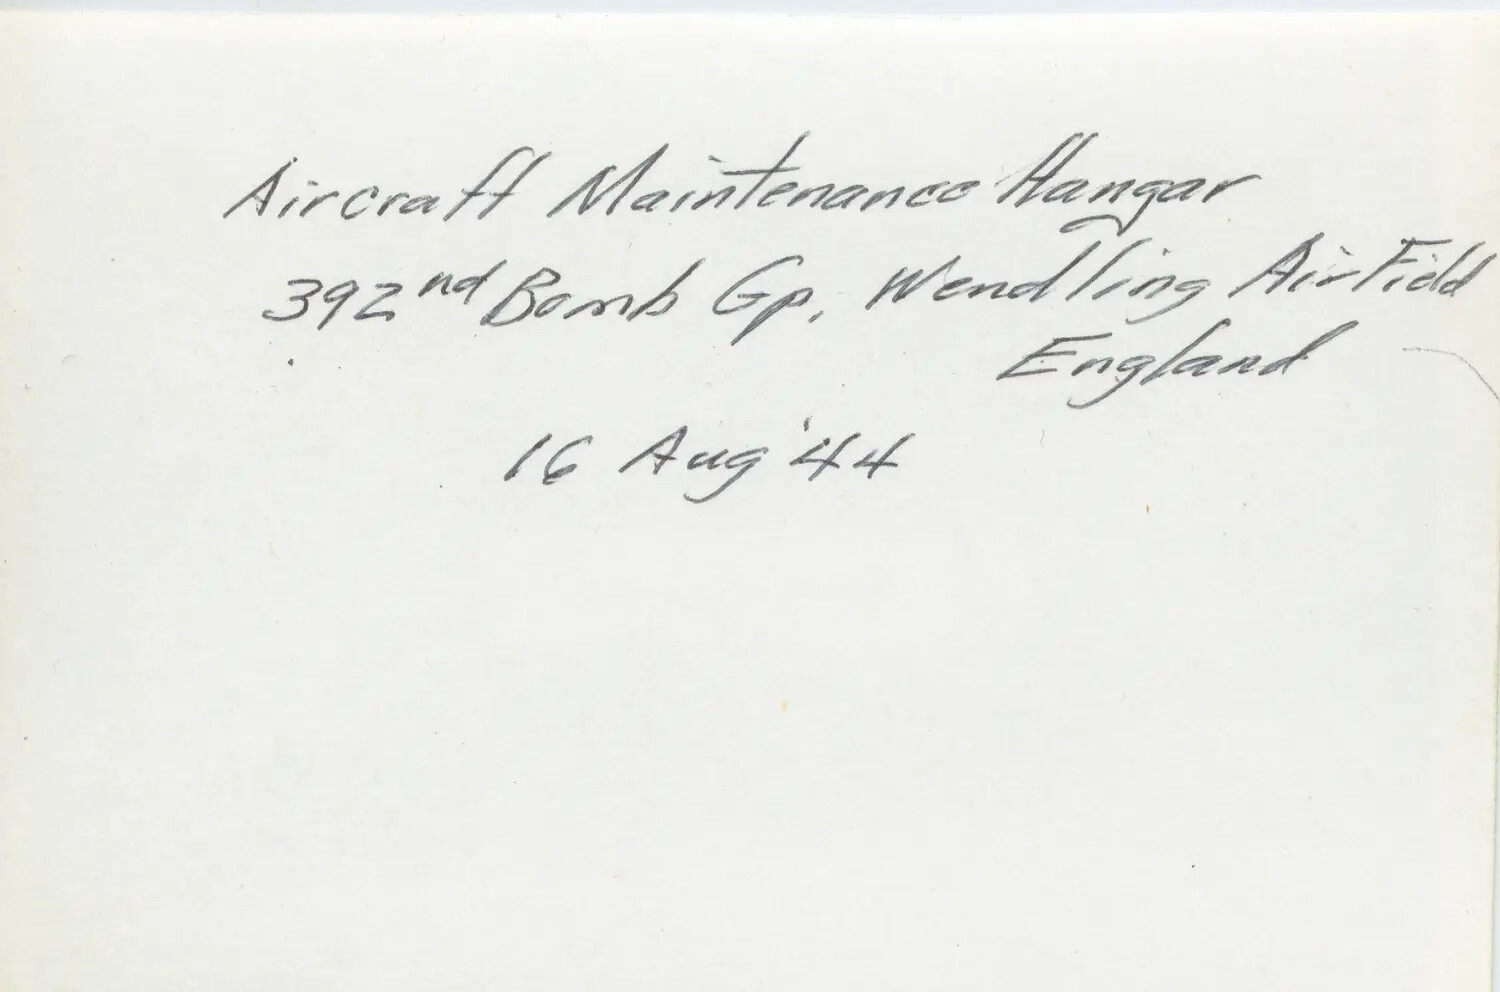 Aircraft Maintenance Hangar
392nd Bomb Gp, Wendling AirField
England
16 Aug '44